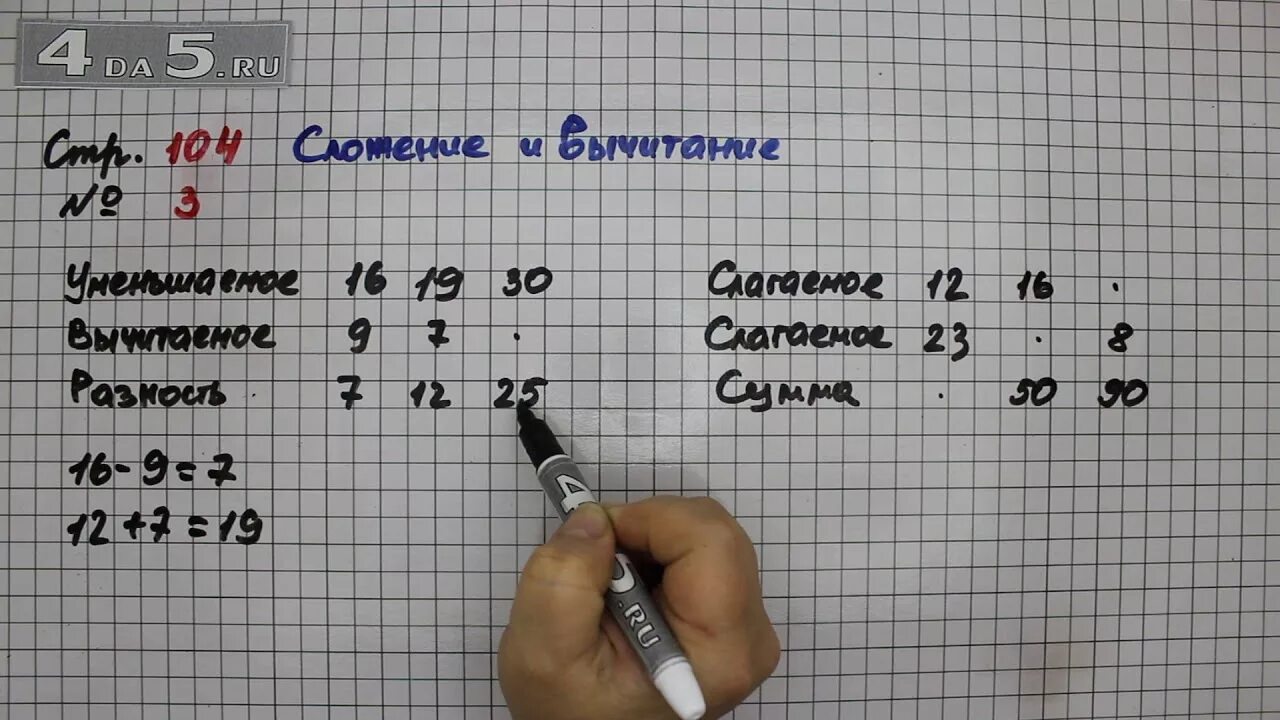 4DA5.RU
Стр. 104 Сложение и вычитание
№ 3
Уменьшаемое 16 19 30
Вычитаемое 9 7 .
Разность 7 12 25
16-9=7
12+7=19
Слагаемое 12 16 .
Слагаемое 23 . 8
Сумма . 50 90
4
5.RU